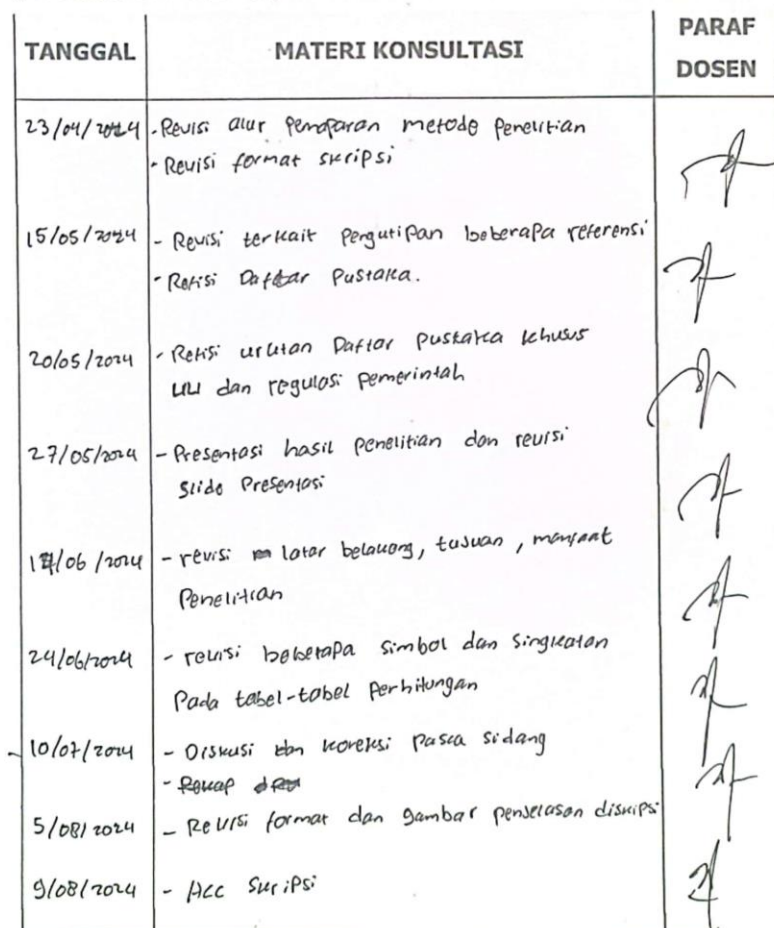 TANGGAL MATERI KONSULTASI PARAF DOSEN
23/04/2024 - Revisi alur pemaparan metode penelitian
- Revisi format skripsi
15/05/2024 - Revisi terkait pergutipan beberapa referensi
- Revisi Daftar Pustaka.
20/05/2024 - Revisi urutan Daftar pustaka khusus
UU dan regulasi pemerintah
27/05/2024 - Presentasi hasil penelitian dan revisi
Slide Presentasi
/06/2024 - revisi latar belakang, tujuan, manfaat
Penelitian
24/06/2024 - revisi beberapa simbol dan singkatan
Pada tabel-tabel Perhitungan
10/07/2024 - Diskusi dan koreksi pasca sidang
- Rekap
5/08/2024 - Revisi format dan gambar penjelasan diskripsi
9/08/2024 - Acc Skripsi